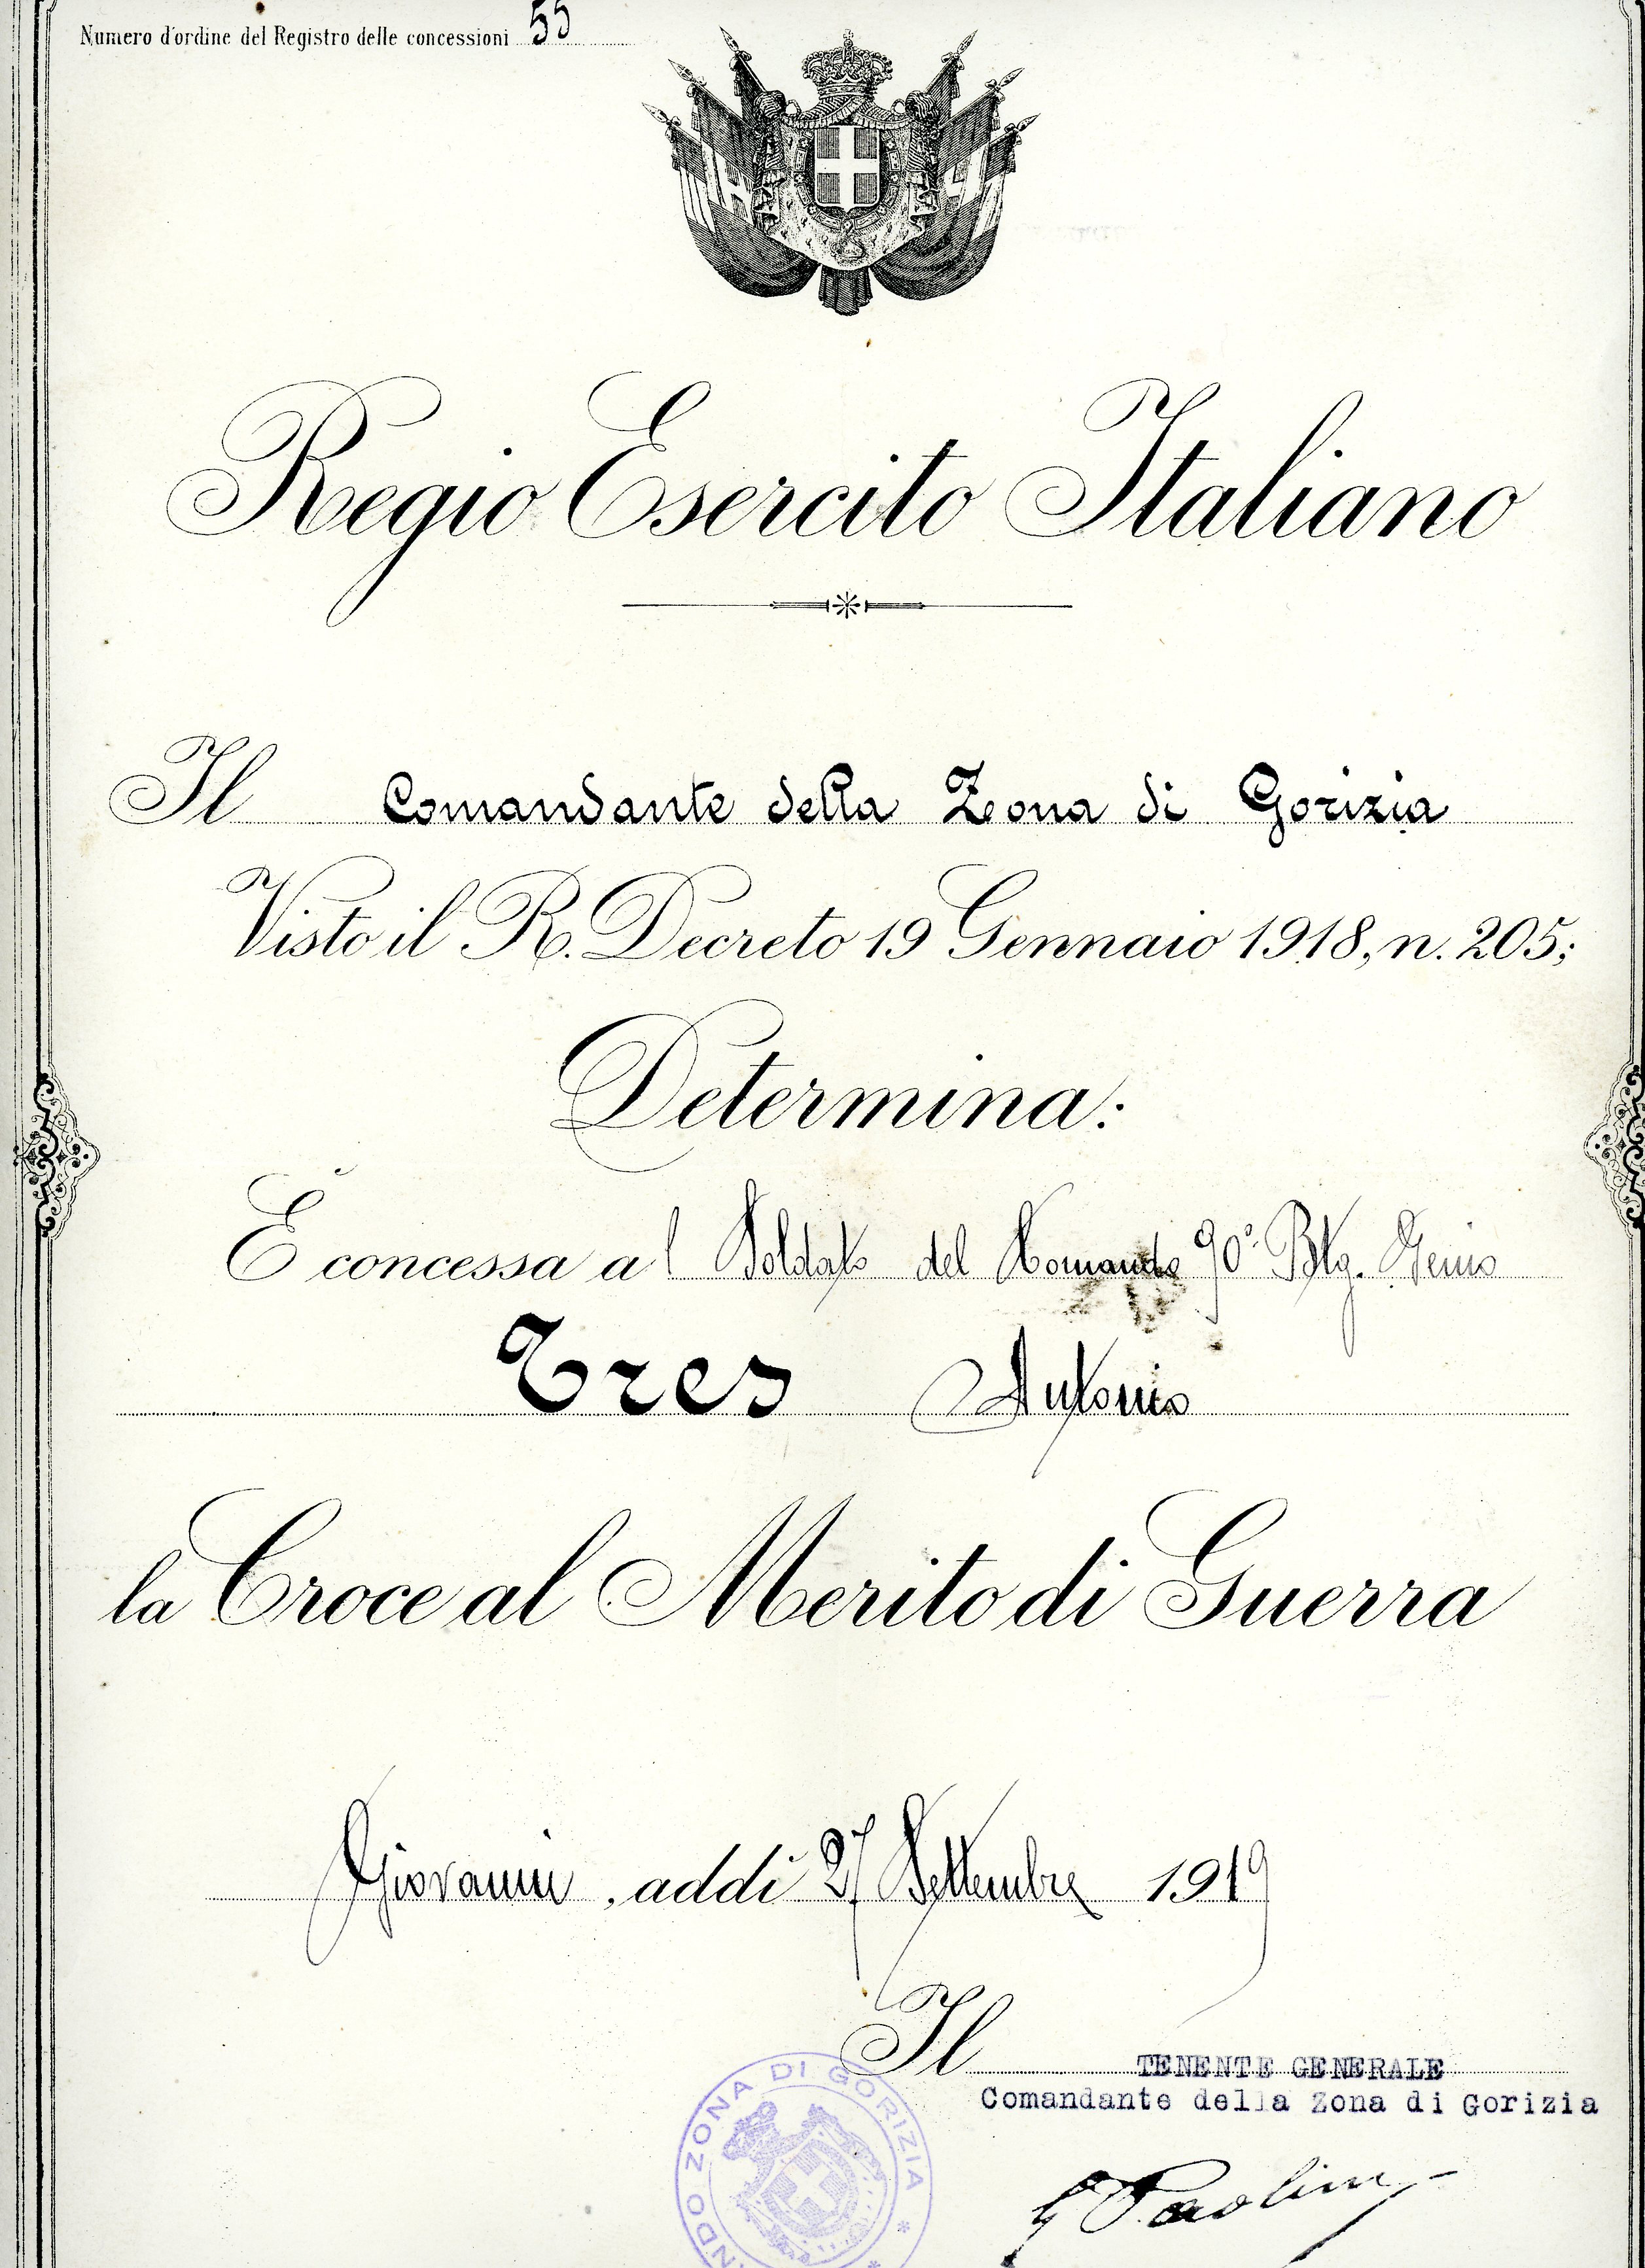 Numero d'ordine del Registro delle concessioni 55
Regio Esercito Italiano
Il Comandante della Zona di Gorizia
Visto il R. Decreto 19 Gennaio 1918, n. 205;
Determina:
È concessa al Soldato del Comando 90° Btg. Genio
Tres Antonio
la Croce al Merito di Guerra
, addì 27 Settembre 1919
Il TENENTE GENERALE
Comandante della Zona di Gorizia
ZONA DI GORIZIA
G Paolini